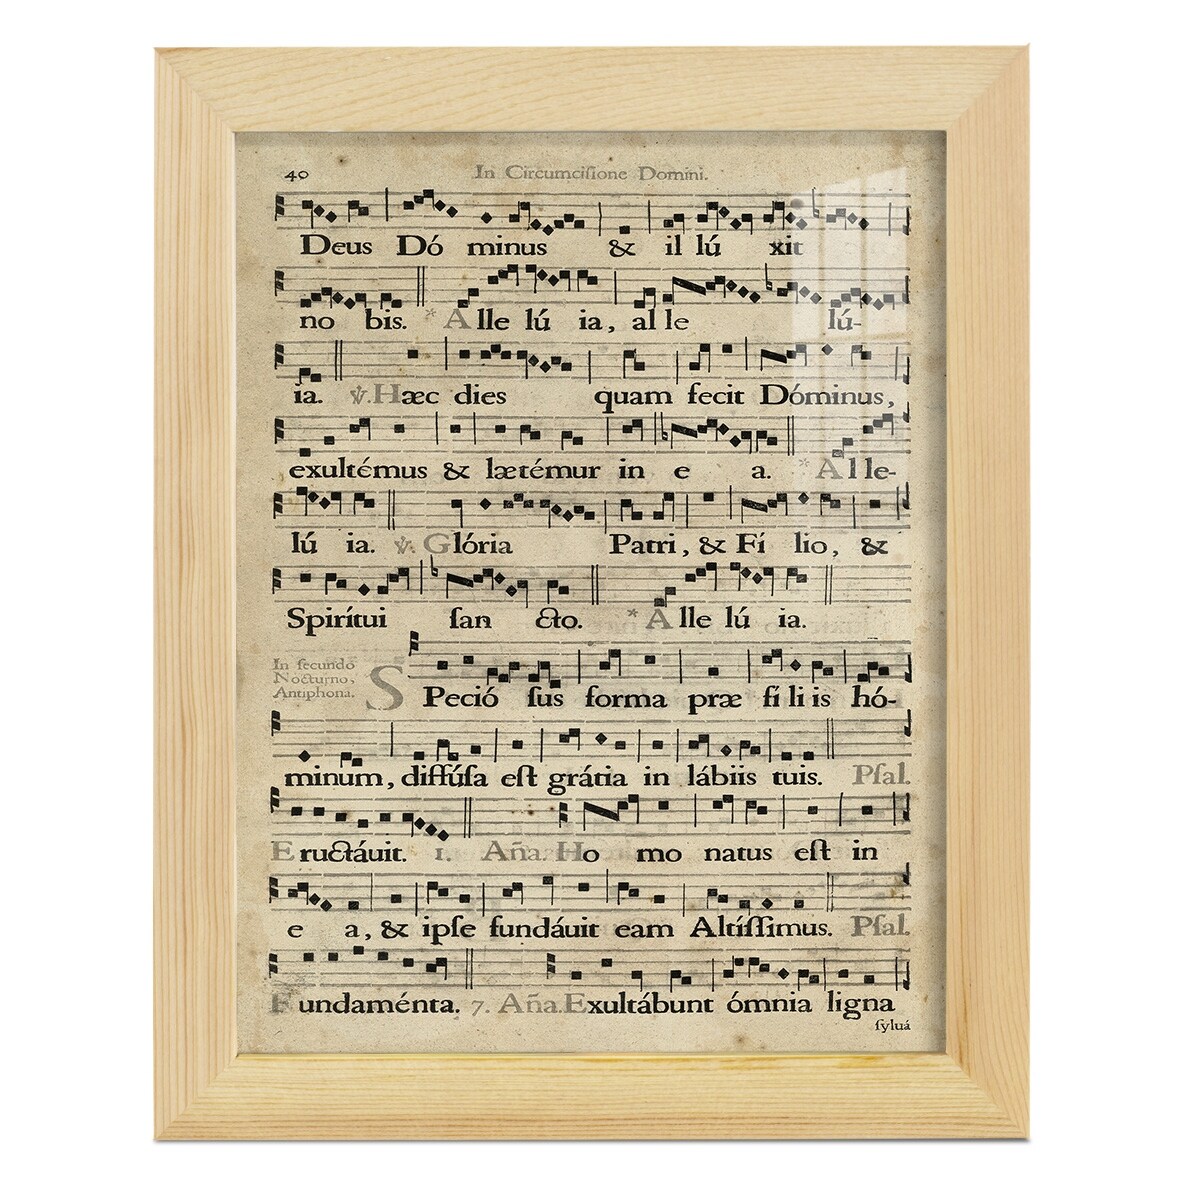 40 In Circumciſione Domini.
Deus Dó minus & il lú xit
no bis. * A lle lú ia, al le lú-
ia. ℣. Hæc dies quam fecit Dóminus,
exultémus & lætémur in e a. * Al le-
lú ia. ℣. Glória Patri, & Fí lio, &
Spirítui ſan cto. * A lle lú ia.
In ſecundo
Nocturno,
Antiphona.
SPeció ſus forma præ fí li is hó-
minum, diffúſa eſt grátia in lábiis tuis. Pſal.
Eructáuit. 1. Aña. Ho mo natus eſt in
e a, & ipſe fundáuit eam Altíſſimus. Pſal.
Fundaménta. 7. Aña. Exultábunt ómnia ligna
ſyluá